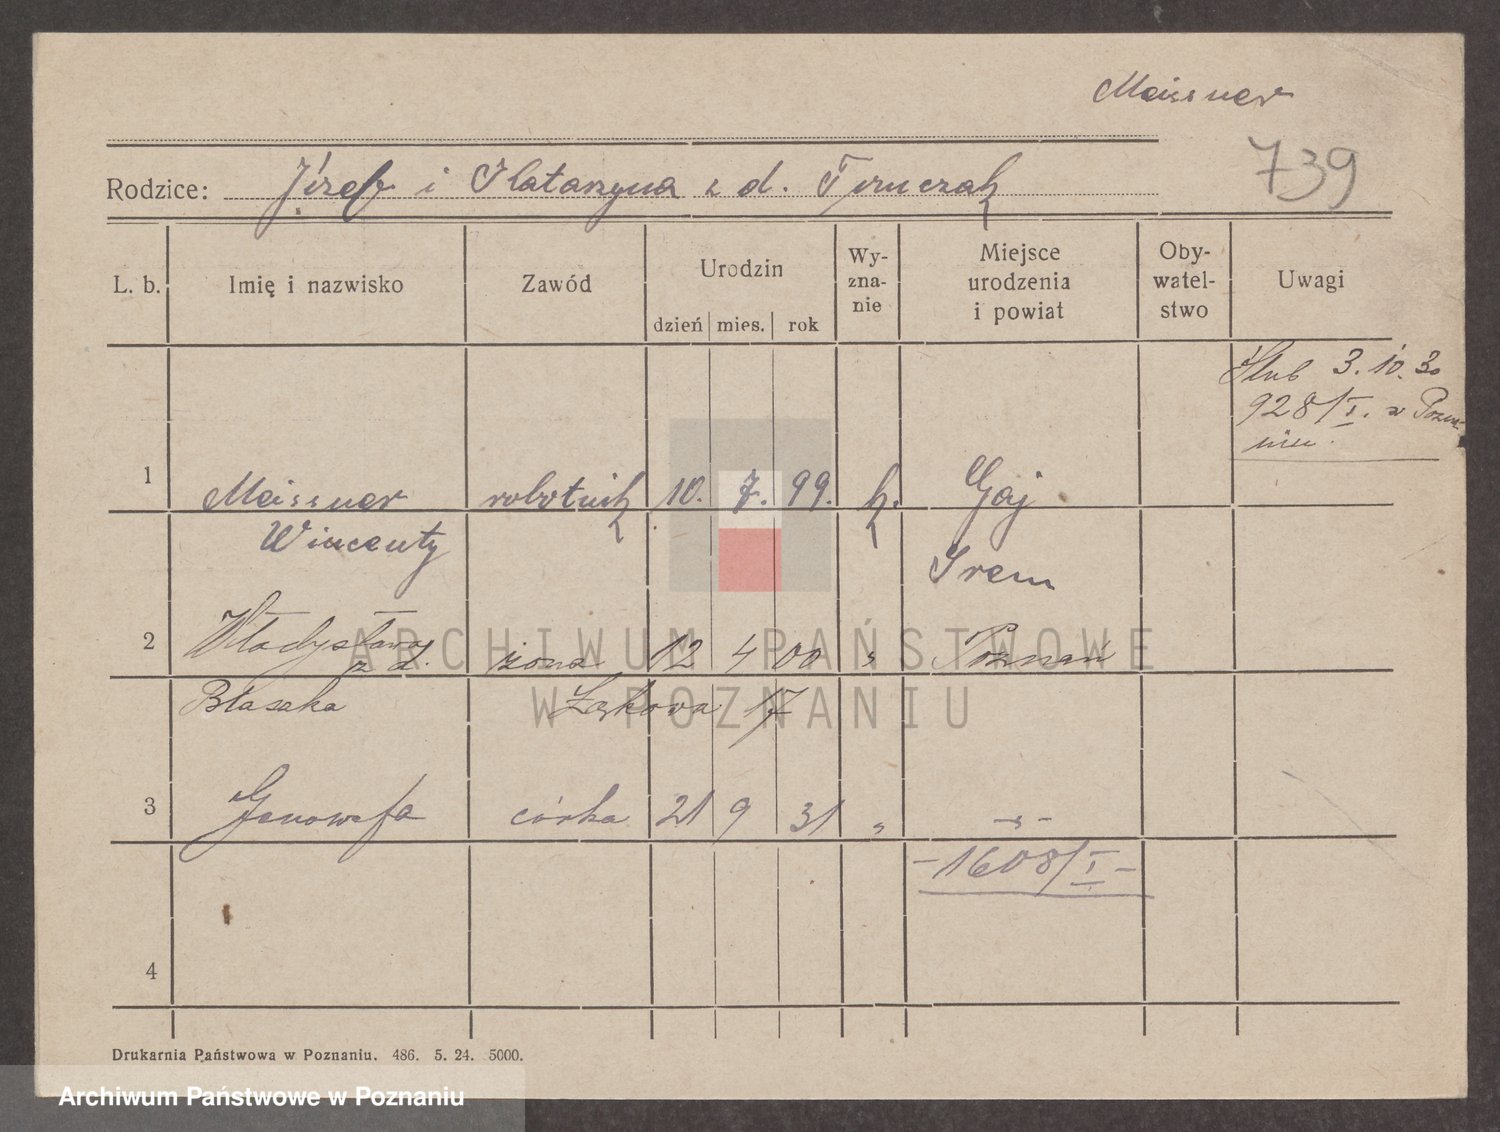 Meissner
739
Rodzice: Józef i Katarzyna z d.
L. b. Imię i nazwisko Zawód Urodzin dzień mies. rok Wy-zna-nie Miejsce urodzenia i powiat Oby-watel-stwo Uwagi
Ślub 3. 10. 30
928/I. w Pozna-
niu.
1 Meissner robotnik 10. 7. 99. k. Gaj
Wincenty Śrem
2 Władysława z d. żona 12 4 00 " Poznań
Błaszka Łąkowa 17
3 Genowefa córka 21 9 31 " - " -
- 1608/I -
4
Drukarnia Państwowa w Poznaniu. 486. 5. 24. 5000.
ARCHIWUM PAŃSTWOWE
W POZNANIU
Archiwum Państwowe w Poznaniu